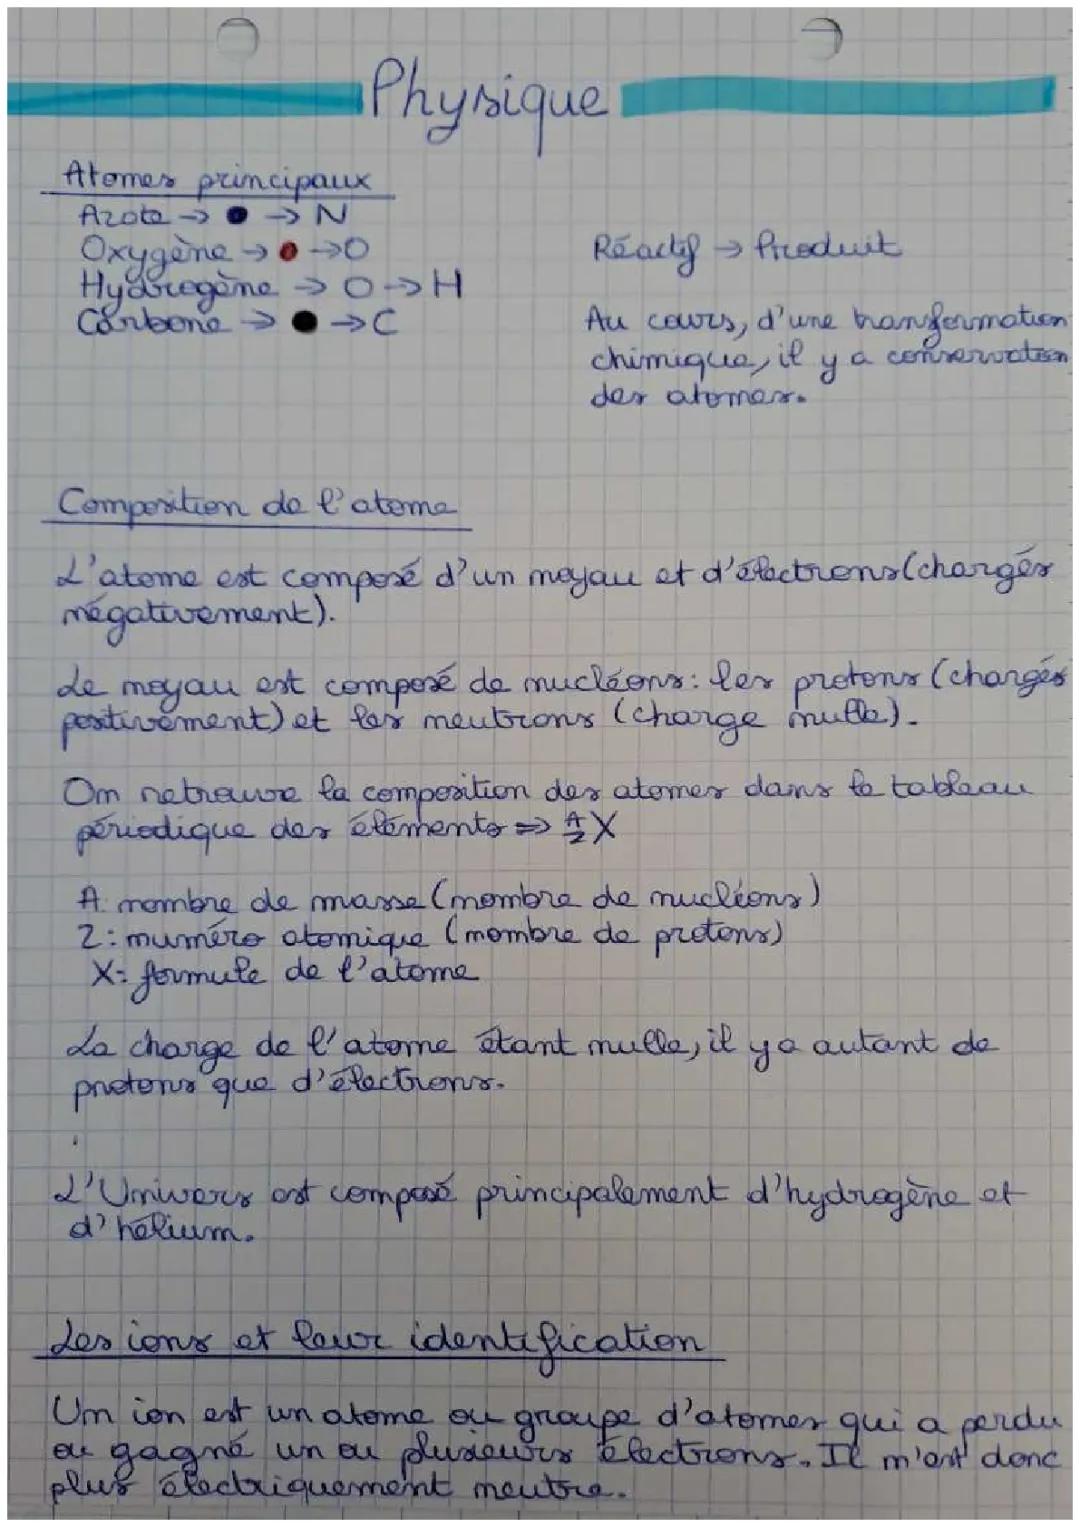 Physique
Atomes principaux
Azote → ● → N
Oxygène → ● → O
Hydrogène → O → H
Carbone → ● → C
Réactif → Produit
Au cours, d'une transformation
chimique, il y a conservation
des atomes.
Composition de l'atome
L'atome est composé d'un noyau et d'électrons (chargés
négativement).
Le noyau est composé de nucléons: les protons (chargés
postivement) et les neutrons (charge nulle).
On retrouve la composition des atomes dans le tableau
périodique des éléments => ᴬ_Z X
A: nombre de masse (nombre de nucléons)
Z: numéro atomique (nombre de protons)
X: formule de l'atome
La charge de l'atome étant nulle, il y a autant de
protons que d'électrons.
L'Univers est composé principalement d'hydrogène et
d'hélium.
Les ions et leur identification
Un ion est un atome ou groupe d'atomes qui a perdu
ou gagné un ou plusieurs électrons. Il n'est donc
plus électriquement neutre.